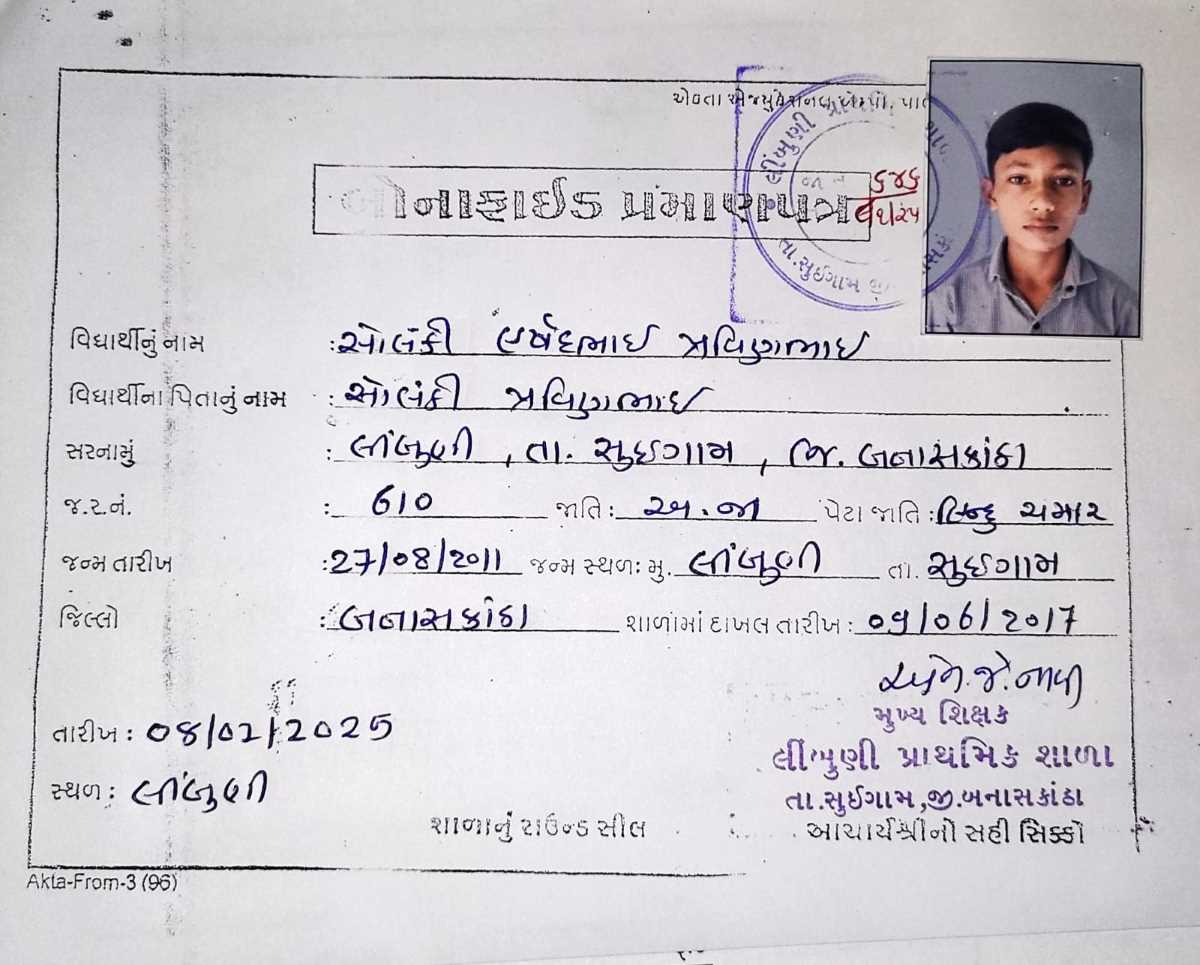 એકતા એજ્યુકેશનલ
લીંબુણી
તા.સુઈગામ
૬૪૬
બોનાફાઈડ પ્રમાણપત્ર
વિદ્યાર્થીનું નામ : સોલંકી હર્ષદભાઇ પ્રવિણભાઇ
વિદ્યાર્થીના પિતાનું નામ : સોલંકી પ્રવિણભાઇ
સરનામું : લીંબુણી , તા. સુઇગામ , જિ. બનાસકાંઠા
જ.ર.નં. : 610 જાતિ : અ.જા પેટા જાતિ : હિન્દુ ચમાર
જન્મ તારીખ : 27/08/2011 જન્મ સ્થળઃ મુ. લીંબુણી તા. સુઇગામ
જિલ્લો : બનાસકાંઠા શાળામાં દાખલ તારીખ : 09/06/2017
મુખ્ય શિક્ષક
તારીખ : 08/02/2025
લીંબુણી પ્રાથમિક શાળા
સ્થળ : લીંબુણી
તા.સુઈગામ,જી.બનાસકાંઠા
શાળાનું રાઉન્ડ સીલ આચાર્યશ્રીનો સહી સિક્કો
Akta-From-3 (96)